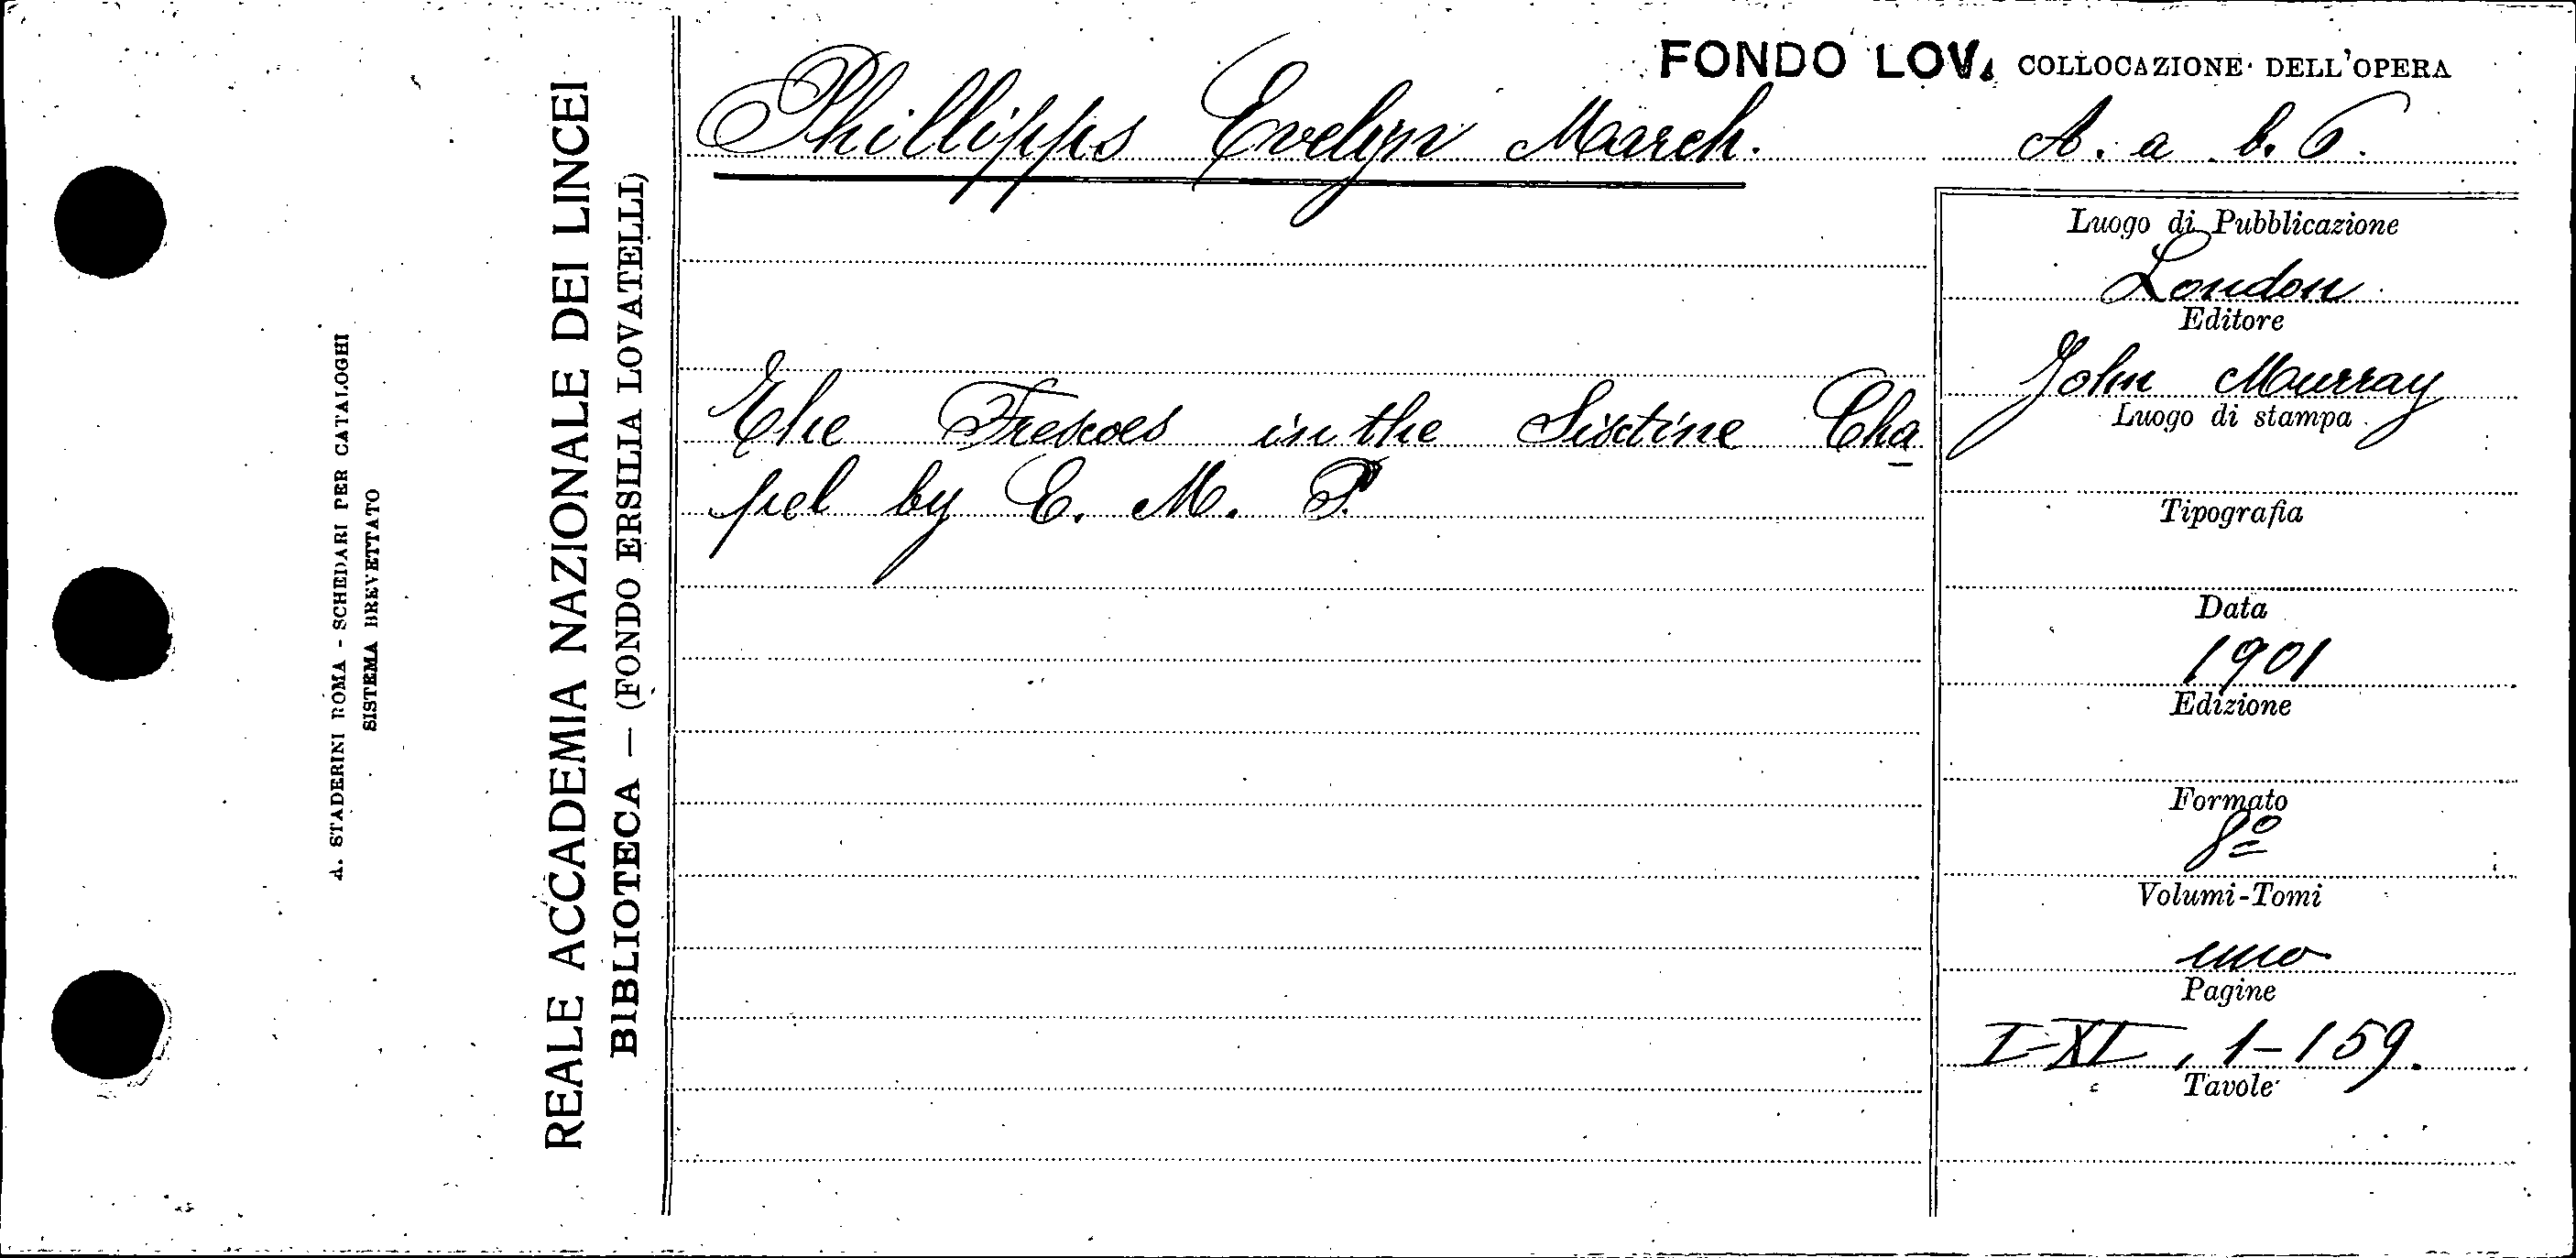 A. STADERINI ROMA - SCHEDARI PER CATALOGHI
SISTEMA BREVETTATO
REALE ACCADEMIA NAZIONALE DEI LINCEI
BIBLIOTECA — (FONDO ERSILIA LOVATELLI)
FONDO LOV. COLLOCAZIONE DELL'OPERA
Phillipps Evelyn March.
A. a b. 6.
The Frescoes in the Sistine Cha
pel by E. M. P.
Luogo di Pubblicazione
London
Editore
John Murray
Luogo di stampa
Tipografia
Data
1901
Edizione
Formato
8º
Volumi-Tomi
uno
Pagine
I-XI, 1-159.
Tavole